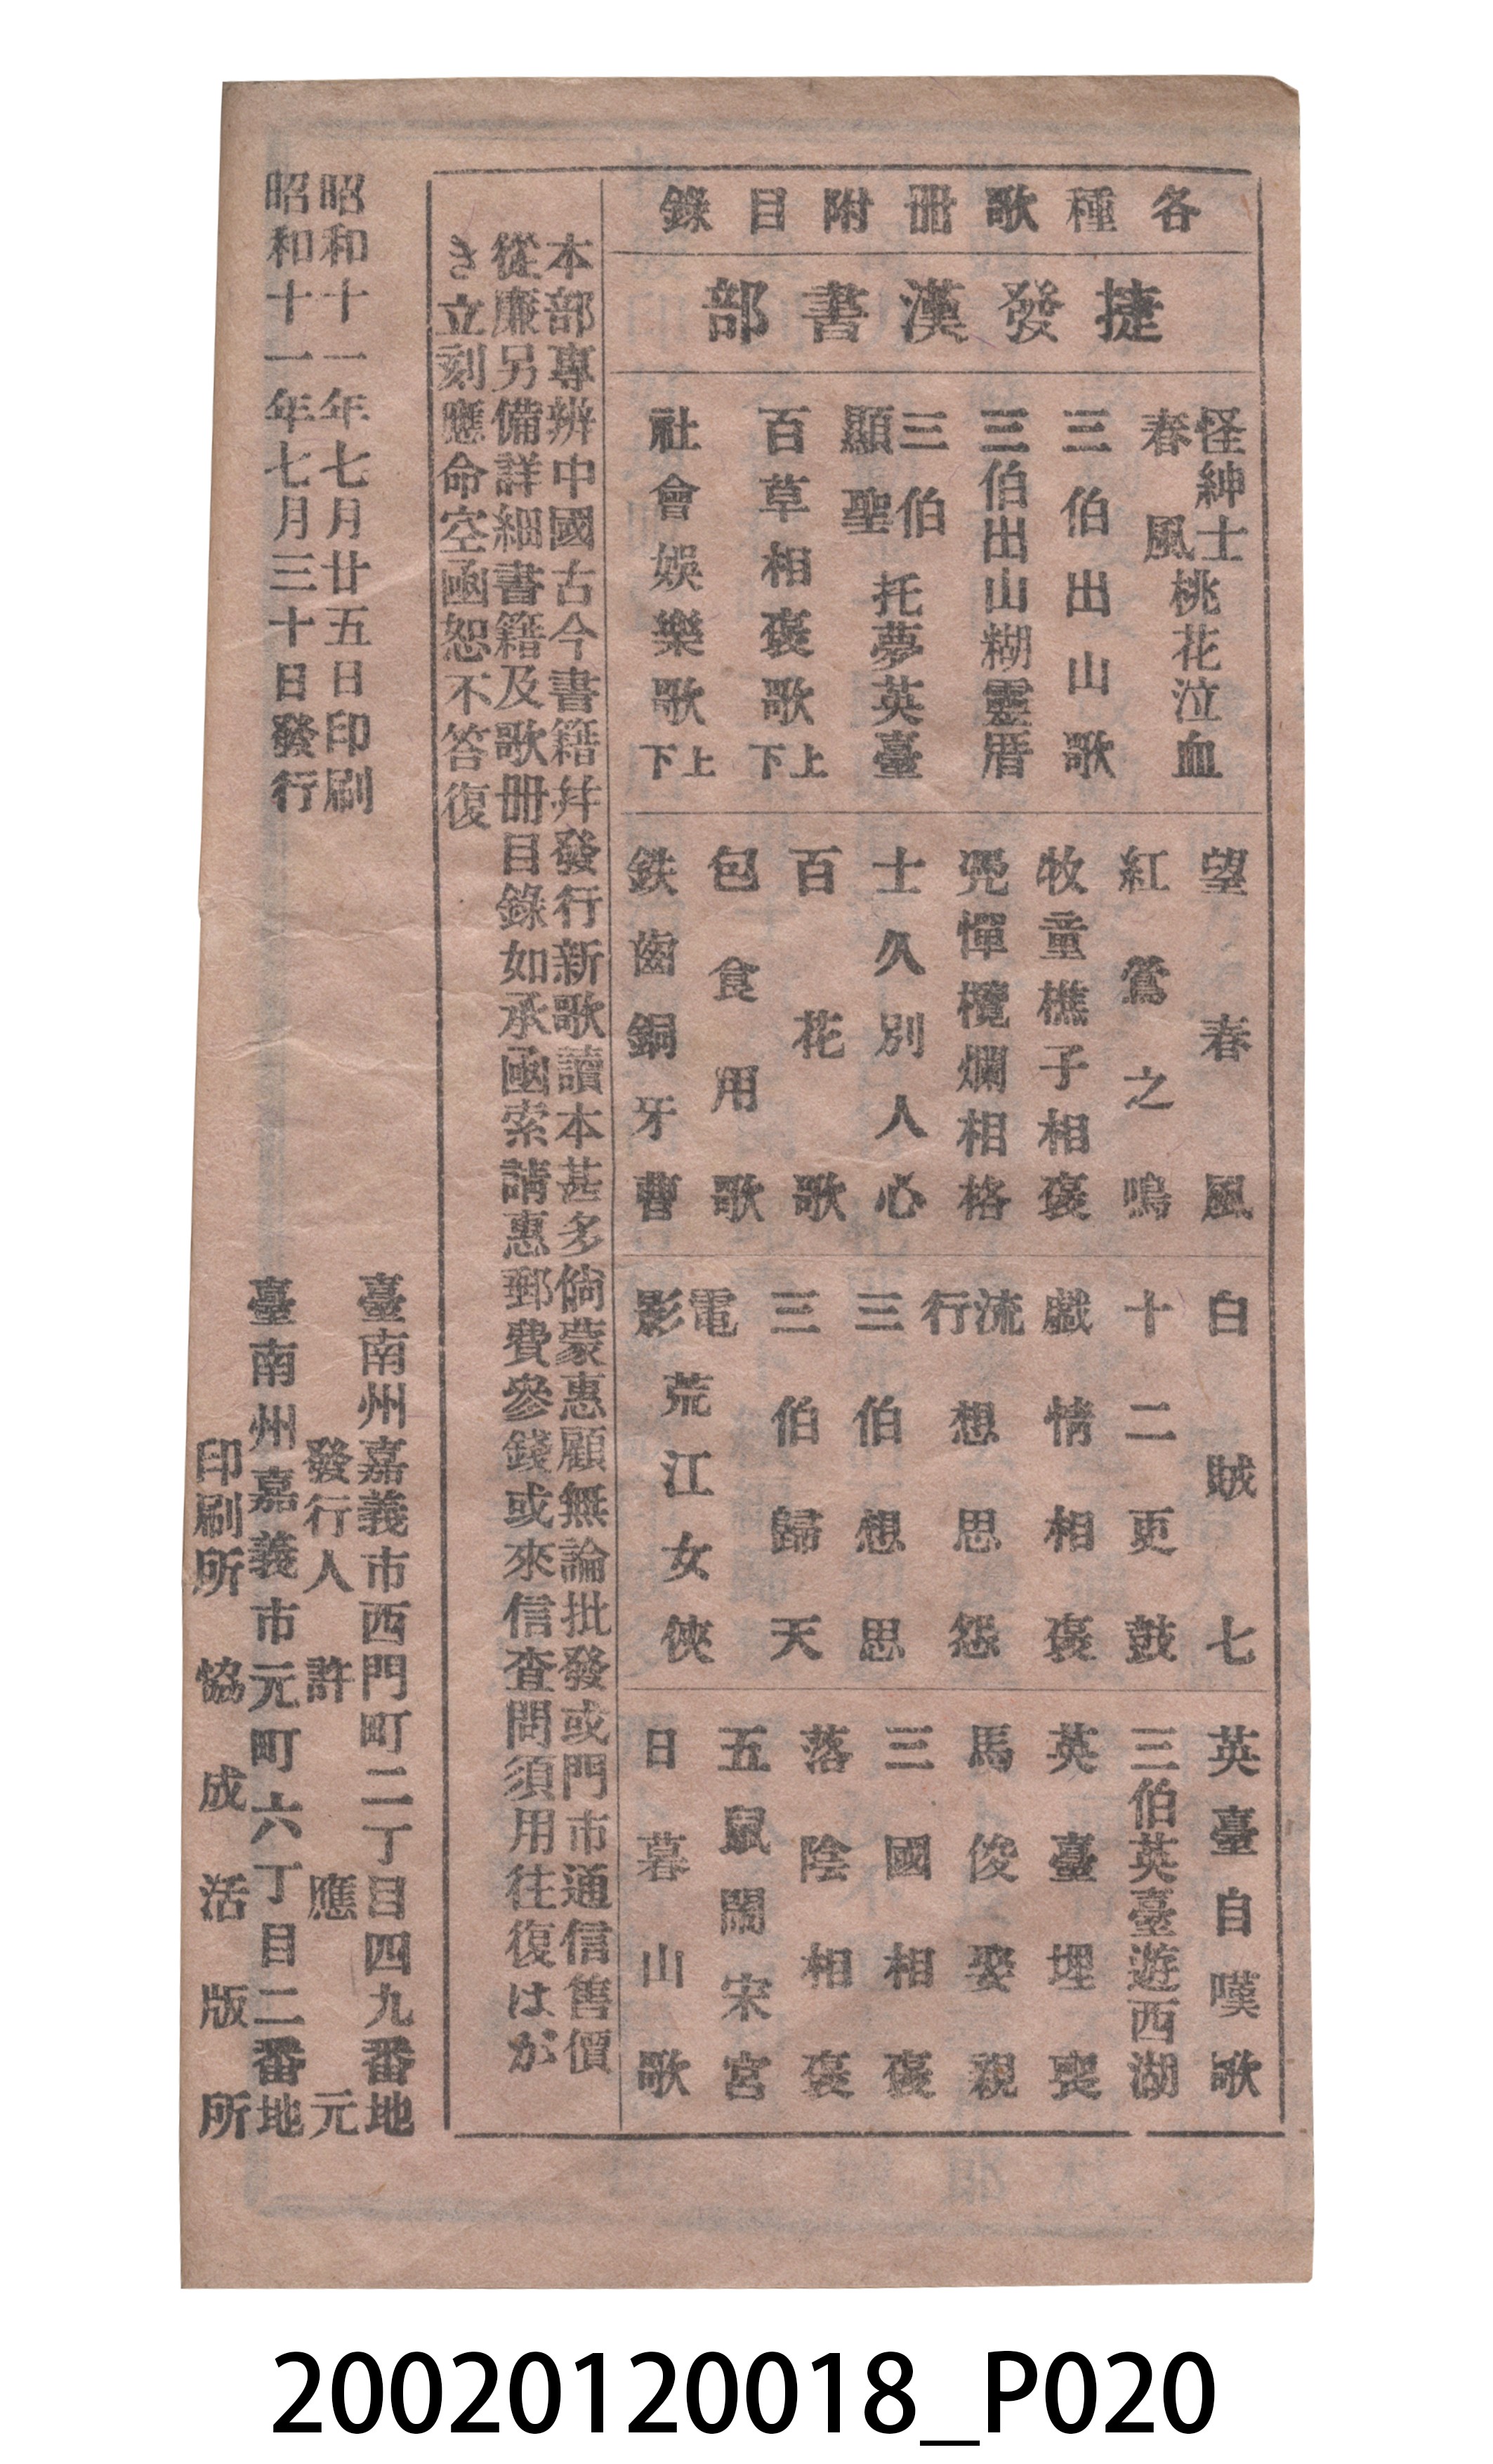 各種歌冊附目錄
捷發漢書部
怪紳士 春風 桃花泣血
三伯出山歌
三伯出山糊靈厝
三伯顯聖 托夢英臺
百草相褒歌 上下
社會娛樂歌 上下
望春風
紅鶯之鳴
牧童樵子相褒
兇憚欖爛相格
士久別人心
百花歌
包食用歌
鉄齒銅牙曹
白賊七
十二更鼓
戲情相褒
流行 想思怨
三伯想思
三伯歸天
電影 荒江女俠
英臺自嘆歌
三伯英臺遊西湖
英臺埋喪
馬俊娶親
三國相褒
落陰相褒
五鼠鬧宋宮
日暮山歌
本部專辨中國古今書籍幷發行新歌讀本甚多倘蒙惠顧無論批發或門市通信售價
從廉另備詳細書籍及歌冊目錄如承函索請惠郵費參錢或來信查問須用往復はが
き立刻應命空函恕不答復
昭和十一年七月廿五日印刷
昭和十一年七月三十日發行
臺南州嘉義市西門町二丁目四九番地
發行人 許應元
臺南州嘉義市元町六丁目二番地
印刷所 協成活版所
20020120018_P020